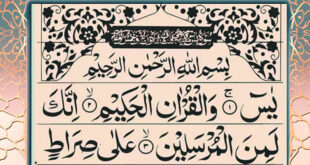 بِسْمِ اللهِ الرَّحْمٰنِ الرَّحِيْمِ
يٰسٓ ۚ ﴿١﴾ وَالْقُرْاٰنِ الْحَكِيْمِ ۙ ﴿٢﴾ اِنَّكَ
لَمِنَ الْمُرْسَلِيْنَ ۙ ﴿٣﴾ عَلٰى صِرَاطٍ